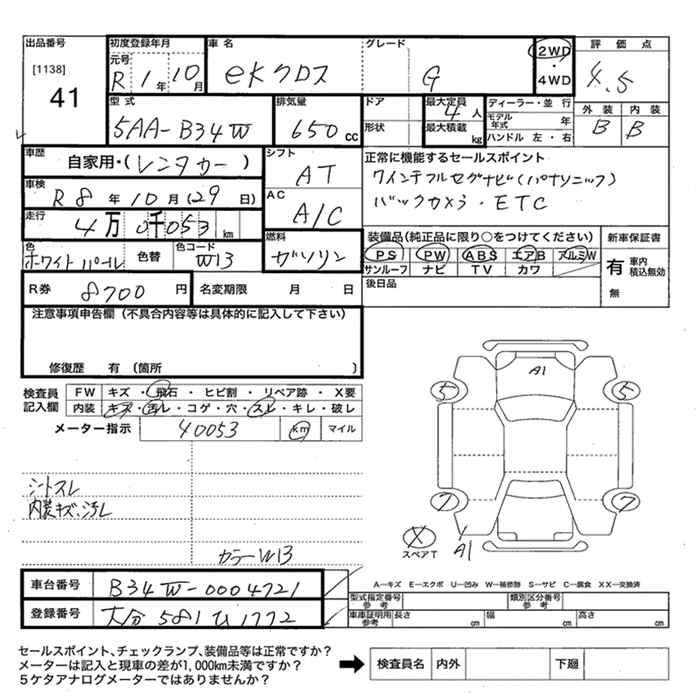 出品番号 [1138] 41
初度登録年月 元号 R 1年 10月
車名 eKクロス
グレード G
2WD・4WD
評価点 4.5
型式 5AA-B34W
排気量 650cc
ドア 形状
最大定員 4人
最大積載 kg
ディーラー・並行
モデル年式 年
ハンドル 左・右
外装 B 内装 B
車歴 自家用・(レンタカー)
シフト AT
車検 R8年10月(29日)
AC A/C
走行 4万0千053km
色 ホワイトパール 色替
色コード W13
燃料 ガソリン
R券 8700円
名変期限 月 日
正常に機能するセールスポイント
7インチフルセグナビ(パナソニック)
バックカメラ・ETC
装備品(純正品に限り○をつけてください)
PS PW ABS エアB アルミW
サンルーフ ナビ TV カワ
後日品
新車保証書
有 車内積込無効
無
注意事項申告欄(不具合内容等は具体的に記入して下さい)
修復歴 有〔箇所 〕
検査員記入欄
FW キズ・飛石・ヒビ割・リペア跡・X要
内装 キズ・汚レ・コゲ・穴・スレ・キレ・破レ
メーター指示 40053 km マイル
シートスレ
内装キズ、汚レ
カラーW13
A1
5 5
7 7
X
スペアT
A1
A…キズ E…エクボ U…凹み W…補修跡 S…サビ C…腐食 XX…交換済
車台番号 B34W-0004721
登録番号 大分 581 ひ1772
型式指定番号 参考
類別区分番号 参考
車庫証明用 参考 長さ cm 幅 cm 高さ cm
セールスポイント、チェックランプ、装備品等は正常ですか?
メーターは記入と現車の差が1,000km未満ですか?
5ケタアナログメーターではありませんか?
検査員名 内外 下廻